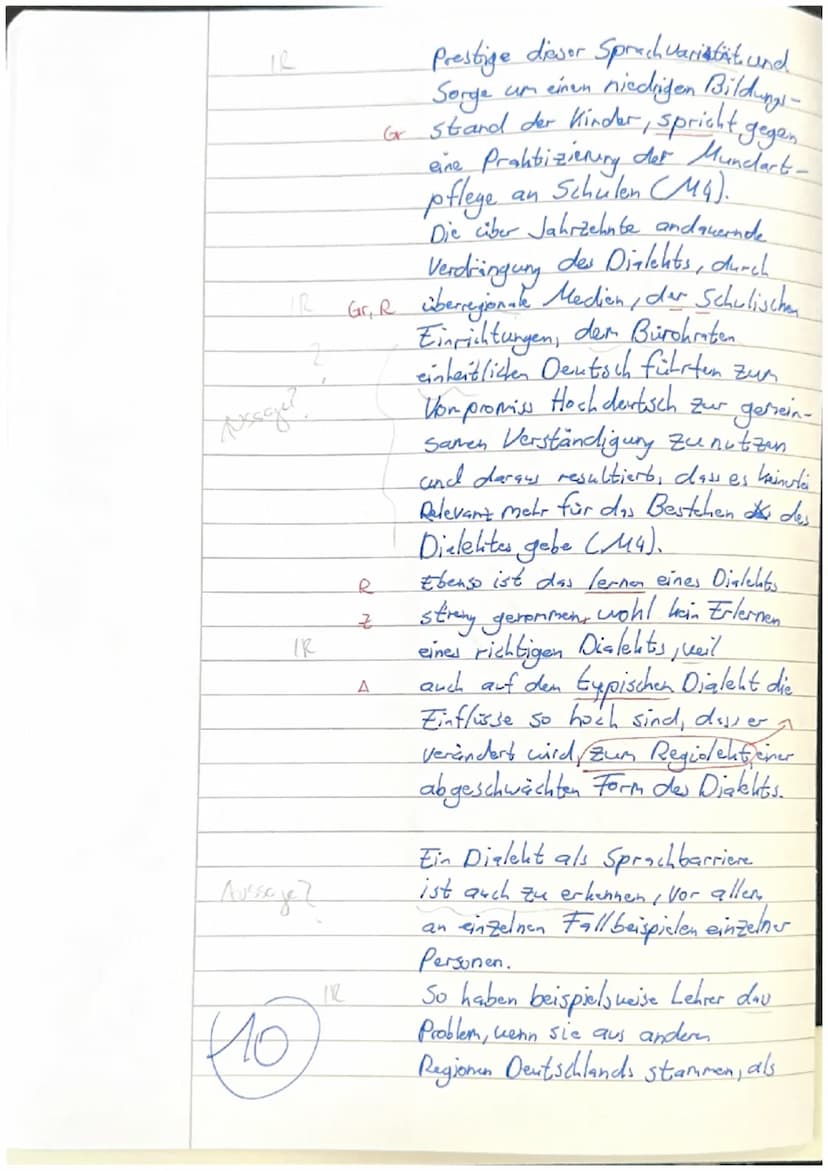 1R Prestige dieser Sprachvarietät und
Sorge um einen niedrigen Bildungs-
Gr stand der Kinder, spricht gegen
eine Praktizierung der Mundart-
pflege an Schulen (M4).
Die über Jahrzehnte andauernde
Verdrängung des Dialekts, durch
1R Gr, R überregionale Medien, der Schulischen
? Einrichtungen, dem Bürokraten
einheitlichen Deutsch führten zum
Aussage? Kompromiss Hochdeutsch zur gemein-
samen Verständigung zu nutzen
und daraus resultiert, dass es keinerlei
Relevanz mehr für das Bestehen des
Dialektes gebe (M4).
R Ebenso ist das lernen eines Dialekts
Z streng genommen, wohl kein Erlernen
1R eines richtigen Dialekts, weil
A auch auf den typischen Dialekt die
Einflüsse so hoch sind, dass er
verändert wird, zum Regiolekt, einer
abgeschwächten Form des Dialekts.
Ein Dialekt als Sprachbarriere
Aussage? ist auch zu erkennen, vor allem
an einzelnen Fallbeispielen einzelner
Personen.
1R So haben beispielsweise Lehrer das
10 Problem, wenn sie aus andern
Regionen Deutschlands stammen, als